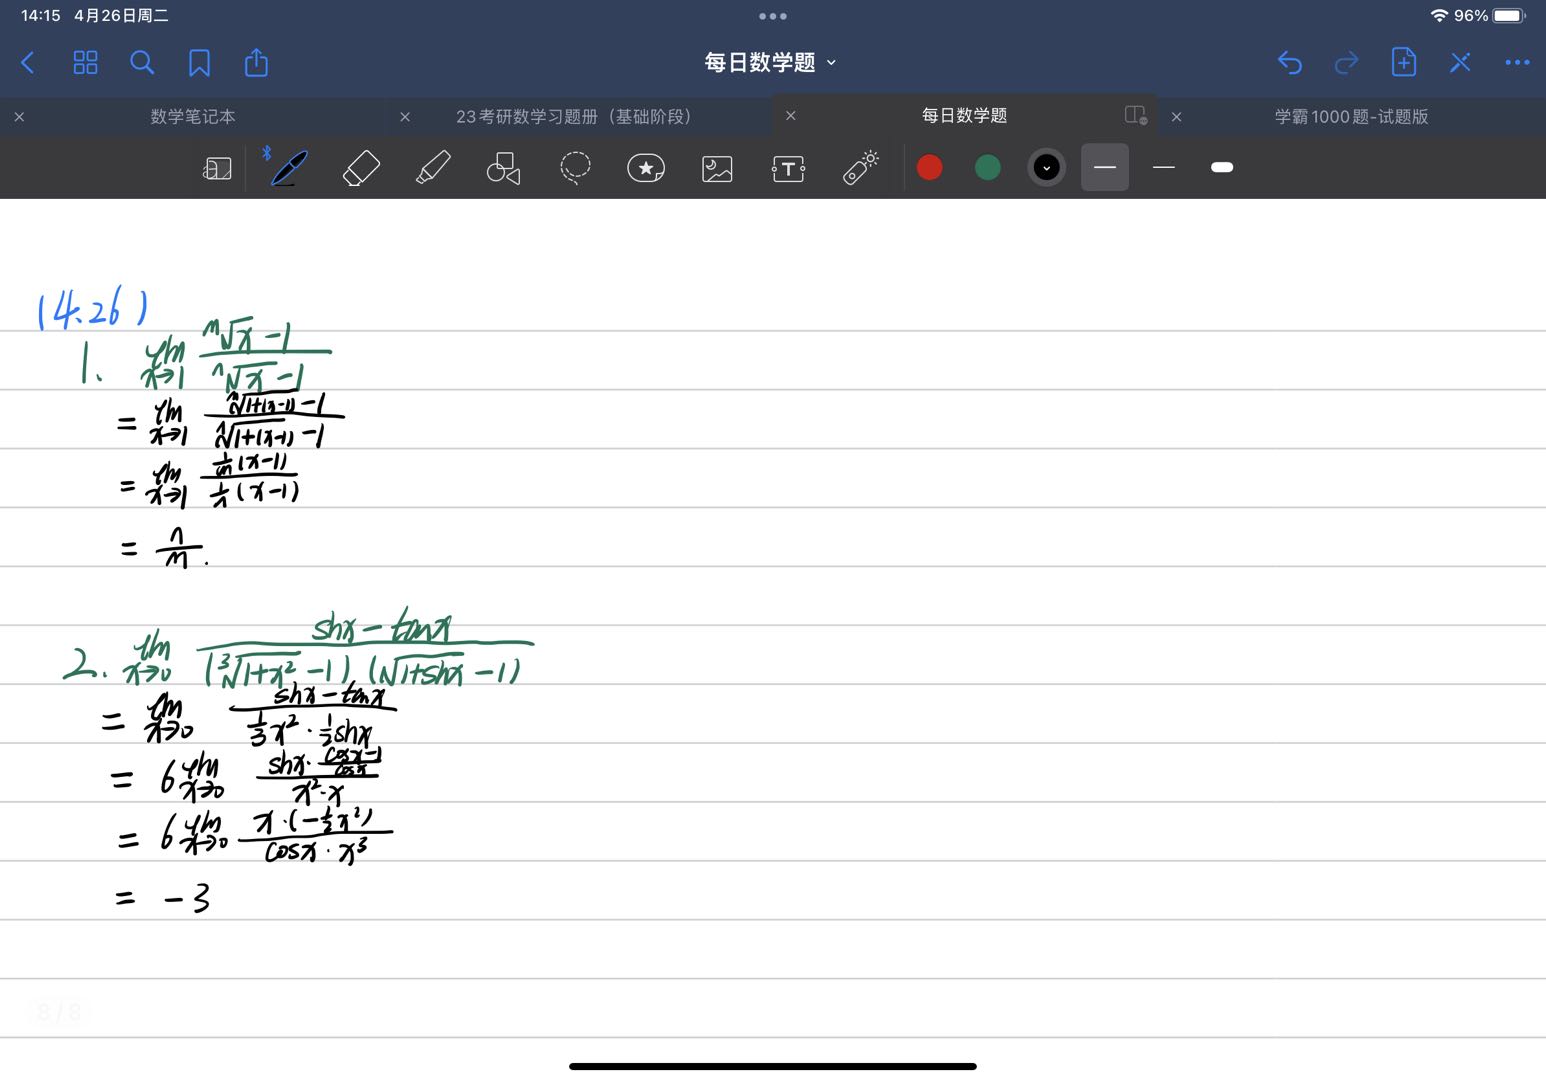 14:15 4月26日周二
96%
每日数学题
数学笔记本
23考研数学习题册（基础阶段）
每日数学题
学霸1000题-试题版
T
(4.26)
1. lim x→1 (ᵐ√x - 1)/(ⁿ√x - 1)
= lim x→1 (ᵐ√1+(x-1) - 1)/(ⁿ√1+(x-1) - 1)
= lim x→1 (1/m (x-1))/(1/n (x-1))
= n/m.
2. lim x→0 (shx - tanx)/((³√1+x² - 1)(√1+shx - 1))
= lim x→0 (shx - tanx)/(1/3 x² · 1/2 shx)
= 6 lim x→0 (shx · (cosx-1)/cosx)/(x² · x)
= 6 lim x→0 (x · (-1/2 x²))/(cosx · x³)
= -3
8/8